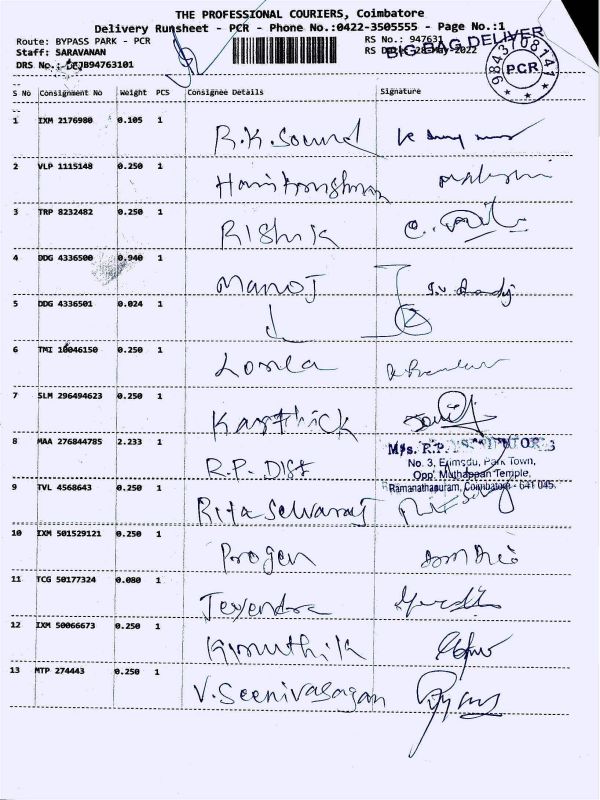 THE PROFESSIONAL COURIERS, Coimbatore
Delivery Runsheet - PCR - Phone No.:0422-3505555 - Page No.:1
Route: BYPASS PARK - PCR
RS No.: 947631
Staff: SARAVANAN
RS Date: 28-May-2022
BIG BAG DELIVER
DRS No.: CJB94763101
9843708141
PCR
S No Consignment No Weight PCS Consignee Details Signature
1 IXM 2176980 0.105 1 R.K. Sound
2 VLP 1115148 0.250 1
3 TRP 8232482 0.250 1 Rishik
4 DDG 4336500 0.940 1 Manoj
5 DDG 4336501 0.024 1
6 TMI 10046150 0.250 1
7 SLM 296494623 0.250 1 Karthick
8 MAA 276844785 2.233 1 R.P. Dist
M/s. R.P.
No. 3, Park Town,
Opp. Muthappan Temple,
Ramanathapuram, Coimbatore - 641 045.
9 TVL 4568643 0.250 1 Rita Selvaraj
10 IXM 501529121 0.250 1 Progen
11 TCG 50177324 0.080 1 Jeyendra
12 IXM 50066673 0.250 1 Kiruthik
13 MTP 274443 0.250 1 V. Seenivasagan